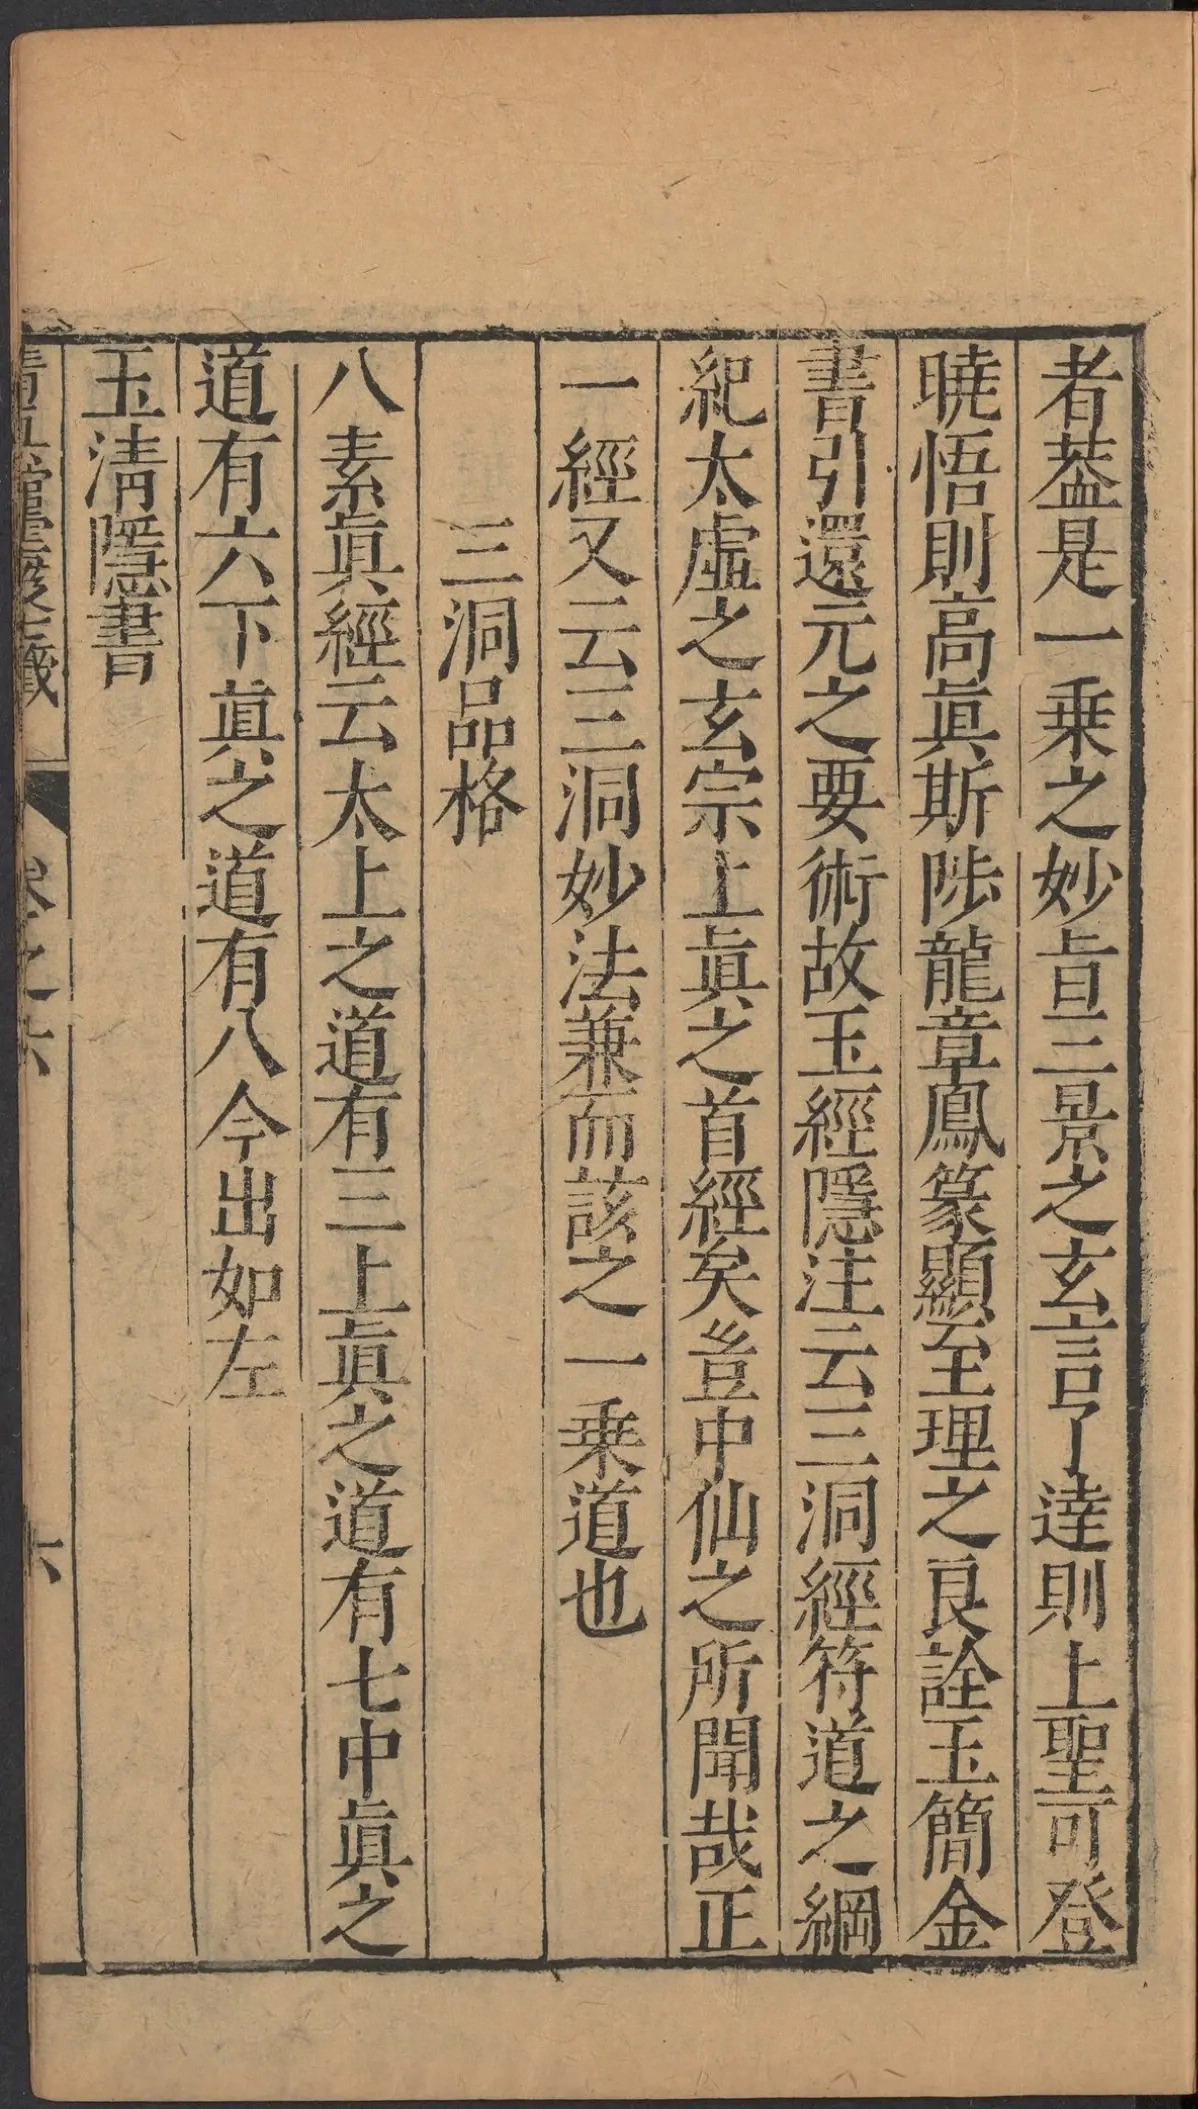 者葢是一乗之妙旨三景之玄言了達則上聖可登
曉悟則高眞斯陟龍章鳳篆顯至理之良詮玉簡金
書引還元之要術故玉經隱注云三洞經符道之綱
紀太虛之玄宗上眞之首經矣豈中仙之所聞哉正
一經又云三洞妙法兼而該之一乗道也
三洞品格
八素眞經云太上之道有三上眞之道有七中眞之
道有六下眞之道有八今出如左
玉淸隱書